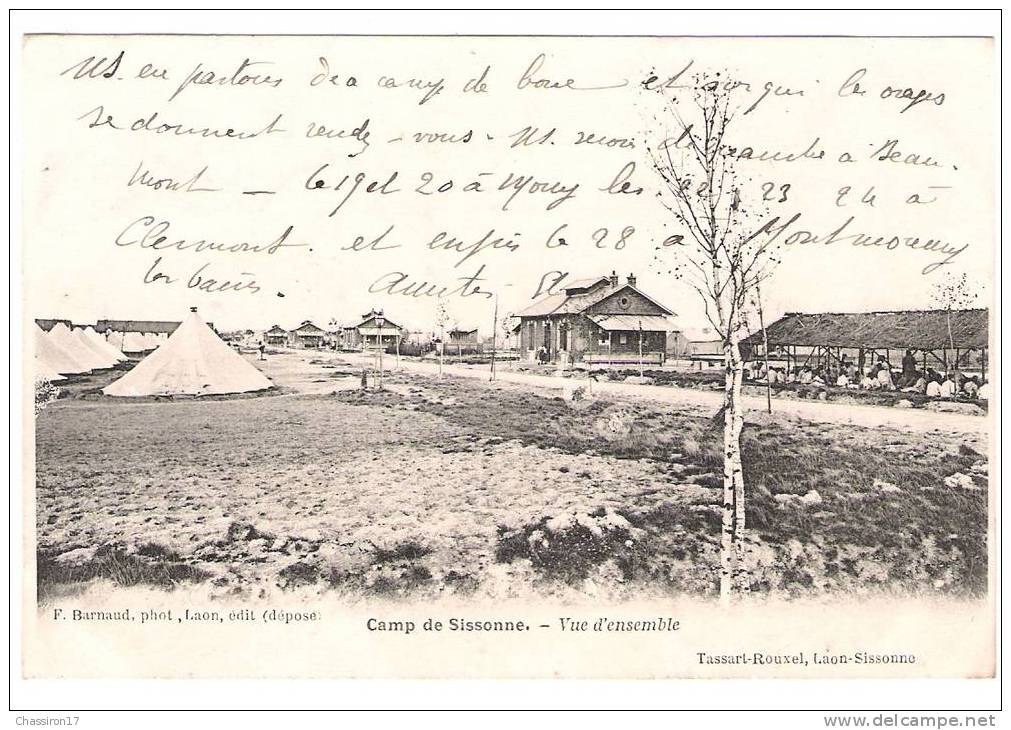 Ns. en partons de ce camp de boue et sur qui les orages
se donnent rendez-vous - Ns. serons dimanche à Beau-
mont — le 19 et 20 à Mouy les 22 23 24 à
Clermont. et enfin le 28 à Montmorency
les bains. Amitiés
F. Barnaud, phot, Laon, édit (déposé)
Camp de Sissonne. - Vue d'ensemble
Tassart-Rouxel, Laon-Sissonne
Chassiron17
www.delcampe.net